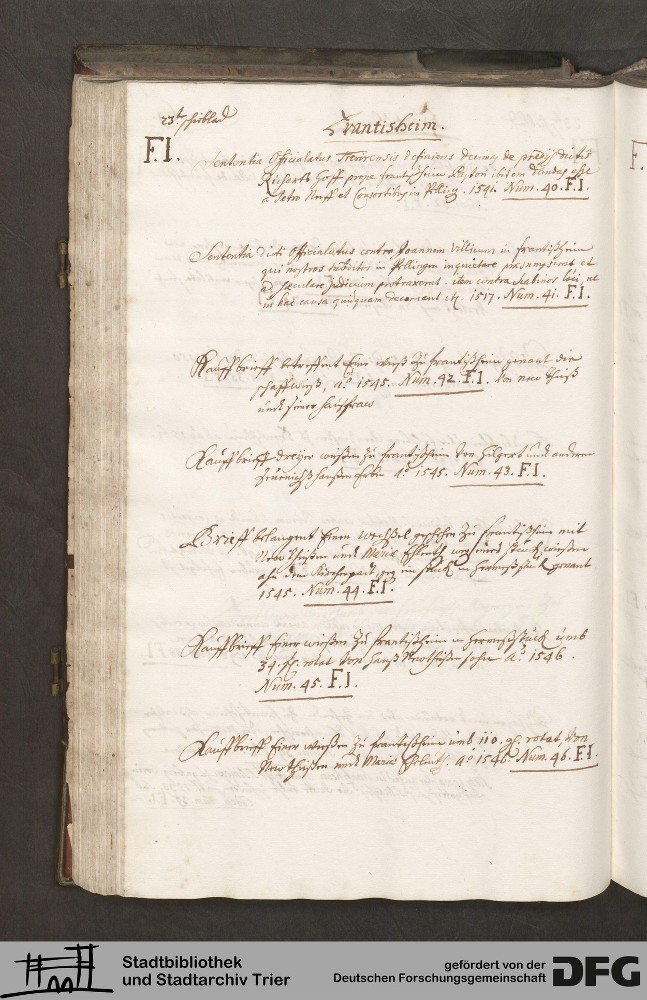 23t schieblad
Frantisheim.
F.I.
Sententia Officialatus Trevirensis definiens decimas de praedijs dictis
Richarts Hoff prope Frantisheim Pastori ibidem dandas esse
a Petro Neuff et Consortibus in Pellingen. 1541. Num. 40. F.I.
Sententia dicti Officialatus contra Joannem Villicum in Frantisheim
qui nostros subditos in Pellingen inquietare praesumpserat et
ad seculare Judicium protraxerat. item contra scabinos loci, ne
in hac causa quicquam decernant etc. 1517. Num. 41. F.I.
Kauffbrieff betreffent Eine wieß zu Frantißheim genant die
schaffwieß, aº 1545. Num. 42. F.I. Von new Theiß
und seiner haußfraw
Kauffbrieff dreyer wießen zu Frantißheim von Hilgert und anderen
haußen Erben Aº 1545. Num. 43. F.I.
Brieff belangent Einen wechßel geschehen zu Frantißheim mit
New Theißen und Maria Eheleuth stuck wießen
ahn dem Kirchenpatt, gegen ein stuck in genant
1545. Num. 44. F.I.
Kauffbrieff Einer wießen zu Frantißheim in umb
34. fl. rotat von hanß Newtheißen sohn Aº 1546.
Num. 45. F.I.
Kauffbrieff Einer wießen zu Frantißheim umb 110. gl. rotat, von
Newtheißen und Maria Eheleuth. Aº 1546. Num. 46. F.I.
F.
Stadtbibliothek
und Stadtarchiv Trier
gefördert von der
Deutschen Forschungsgemeinschaft
DFG